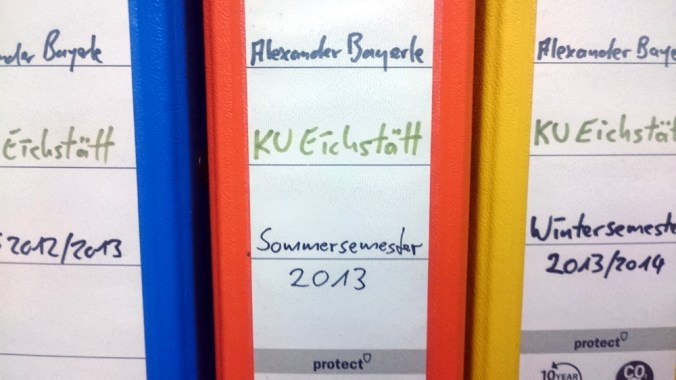 Alexander Bayerle
Eichstätt
2012/2013
Alexander Bayerle
KU Eichstätt
Sommersemester
2013
protect
Alexander Baye
KU Eichstätt
Wintersemeste
2013/2014
protect
10 YEAR
CO